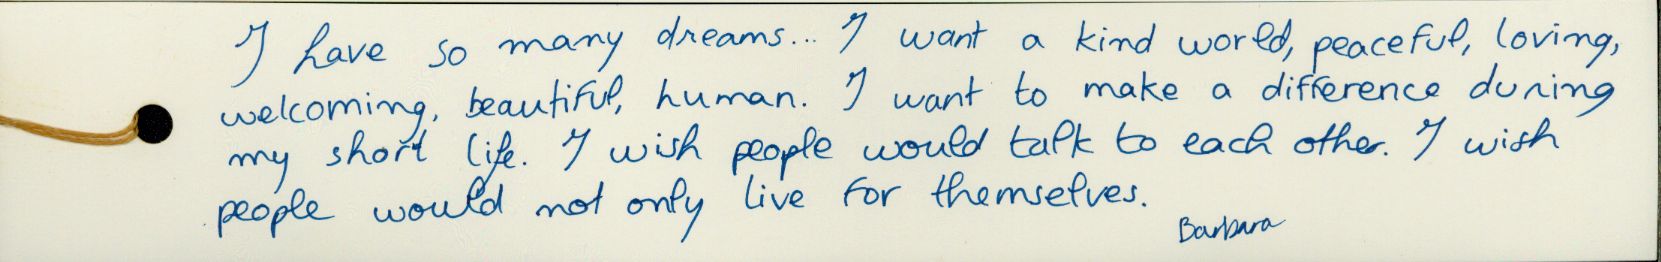 I have so many dreams... I want a kind world, peaceful, loving,
welcoming, beautiful, human. I want to make a difference during
my short life. I wish people would talk to each other. I wish
people would not only live for themselves.
Barbara